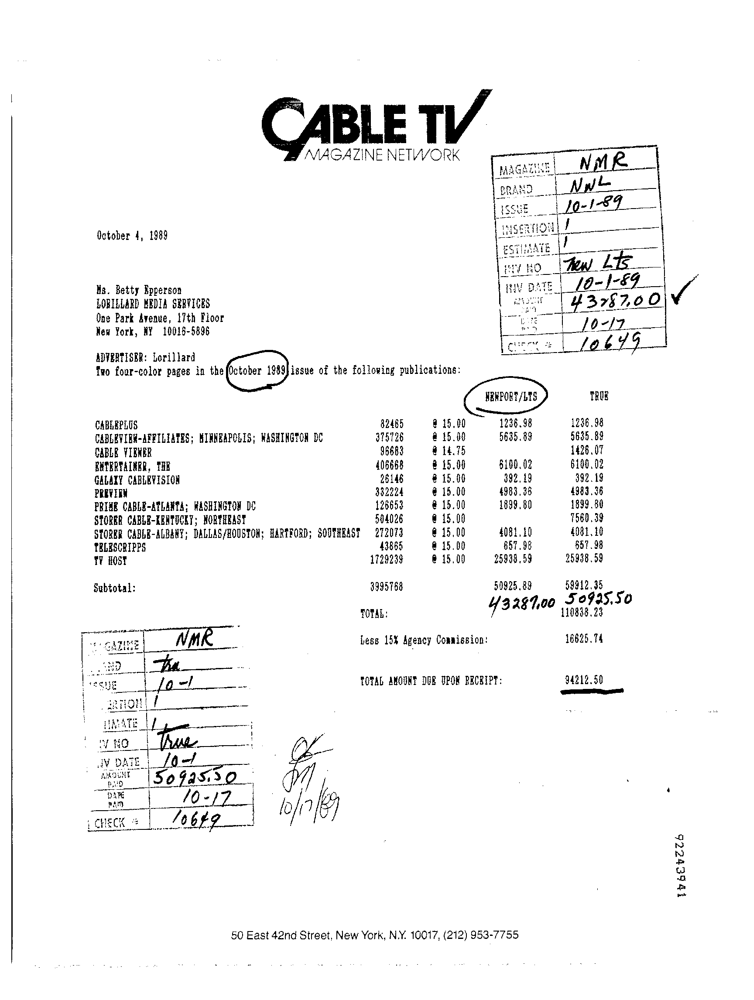 CABLE TV
MAGAZINE NETWORK
MAGAZINE NMR
BRAND NWL
ISSUE 10-1-89
INSERTION 1
ESTIMATE 1
INV NO New Lts
INV DATE 10-1-89
AMOUNT PAID 43287.00 ✓
DATE PAID 10-17
CHECK # 10649
October 4, 1989
Ms. Betty Epperson
LORILLARD MEDIA SERVICES
One Park Avenue, 17th Floor
New York, NY 10016-5896
ADVERTISER: Lorillard
Two four-color pages in the October 1989 issue of the following publications:
NEWPORT/LTS TRUE
CABLEPLUS 82465 @ 15.00 1236.98 1236.98
CABLEVIEW-AFFILIATES; MINNEAPOLIS; WASHINGTON DC 375726 @ 15.00 5635.89 5635.89
CABLE VIEWER 96683 @ 14.75 1426.07
ENTERTAINER, THE 406668 @ 15.00 6100.02 6100.02
GALAXY CABLEVISION 26146 @ 15.00 392.19 392.19
PREVIEW 332224 @ 15.00 4983.36 4983.36
PRIME CABLE-ATLANTA; WASHINGTON DC 126653 @ 15.00 1899.80 1899.80
STORER CABLE-KENTUCKY; NORTHEAST 504026 @ 15.00 7560.39
STORER CABLE-ALBANY; DALLAS/HOUSTON; HARTFORD; SOUTHEAST 272073 @ 15.00 4081.10 4081.10
TELESCRIPPS 43865 @ 15.00 657.98 657.98
TV HOST 1729239 @ 15.00 25938.59 25938.59
Subtotal: 3995768 50925.89 59912.35
43287.00 50925.50
TOTAL: 110838.23
Less 15% Agency Commission: 16625.74
TOTAL AMOUNT DUE UPON RECEIPT: 94212.50
MAGAZINE NMR
BRAND Tru
ISSUE 10-1
INSERTION 1
ESTIMATE 1
INV NO True
INV DATE 10-1
AMOUNT PAID 50925.50
DATE PAID 10-17
CHECK # 10649
10/17/89
92243941
50 East 42nd Street, New York, N.Y. 10017, (212) 953-7755